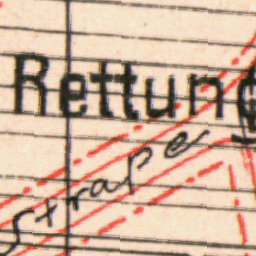 Rettung
straße